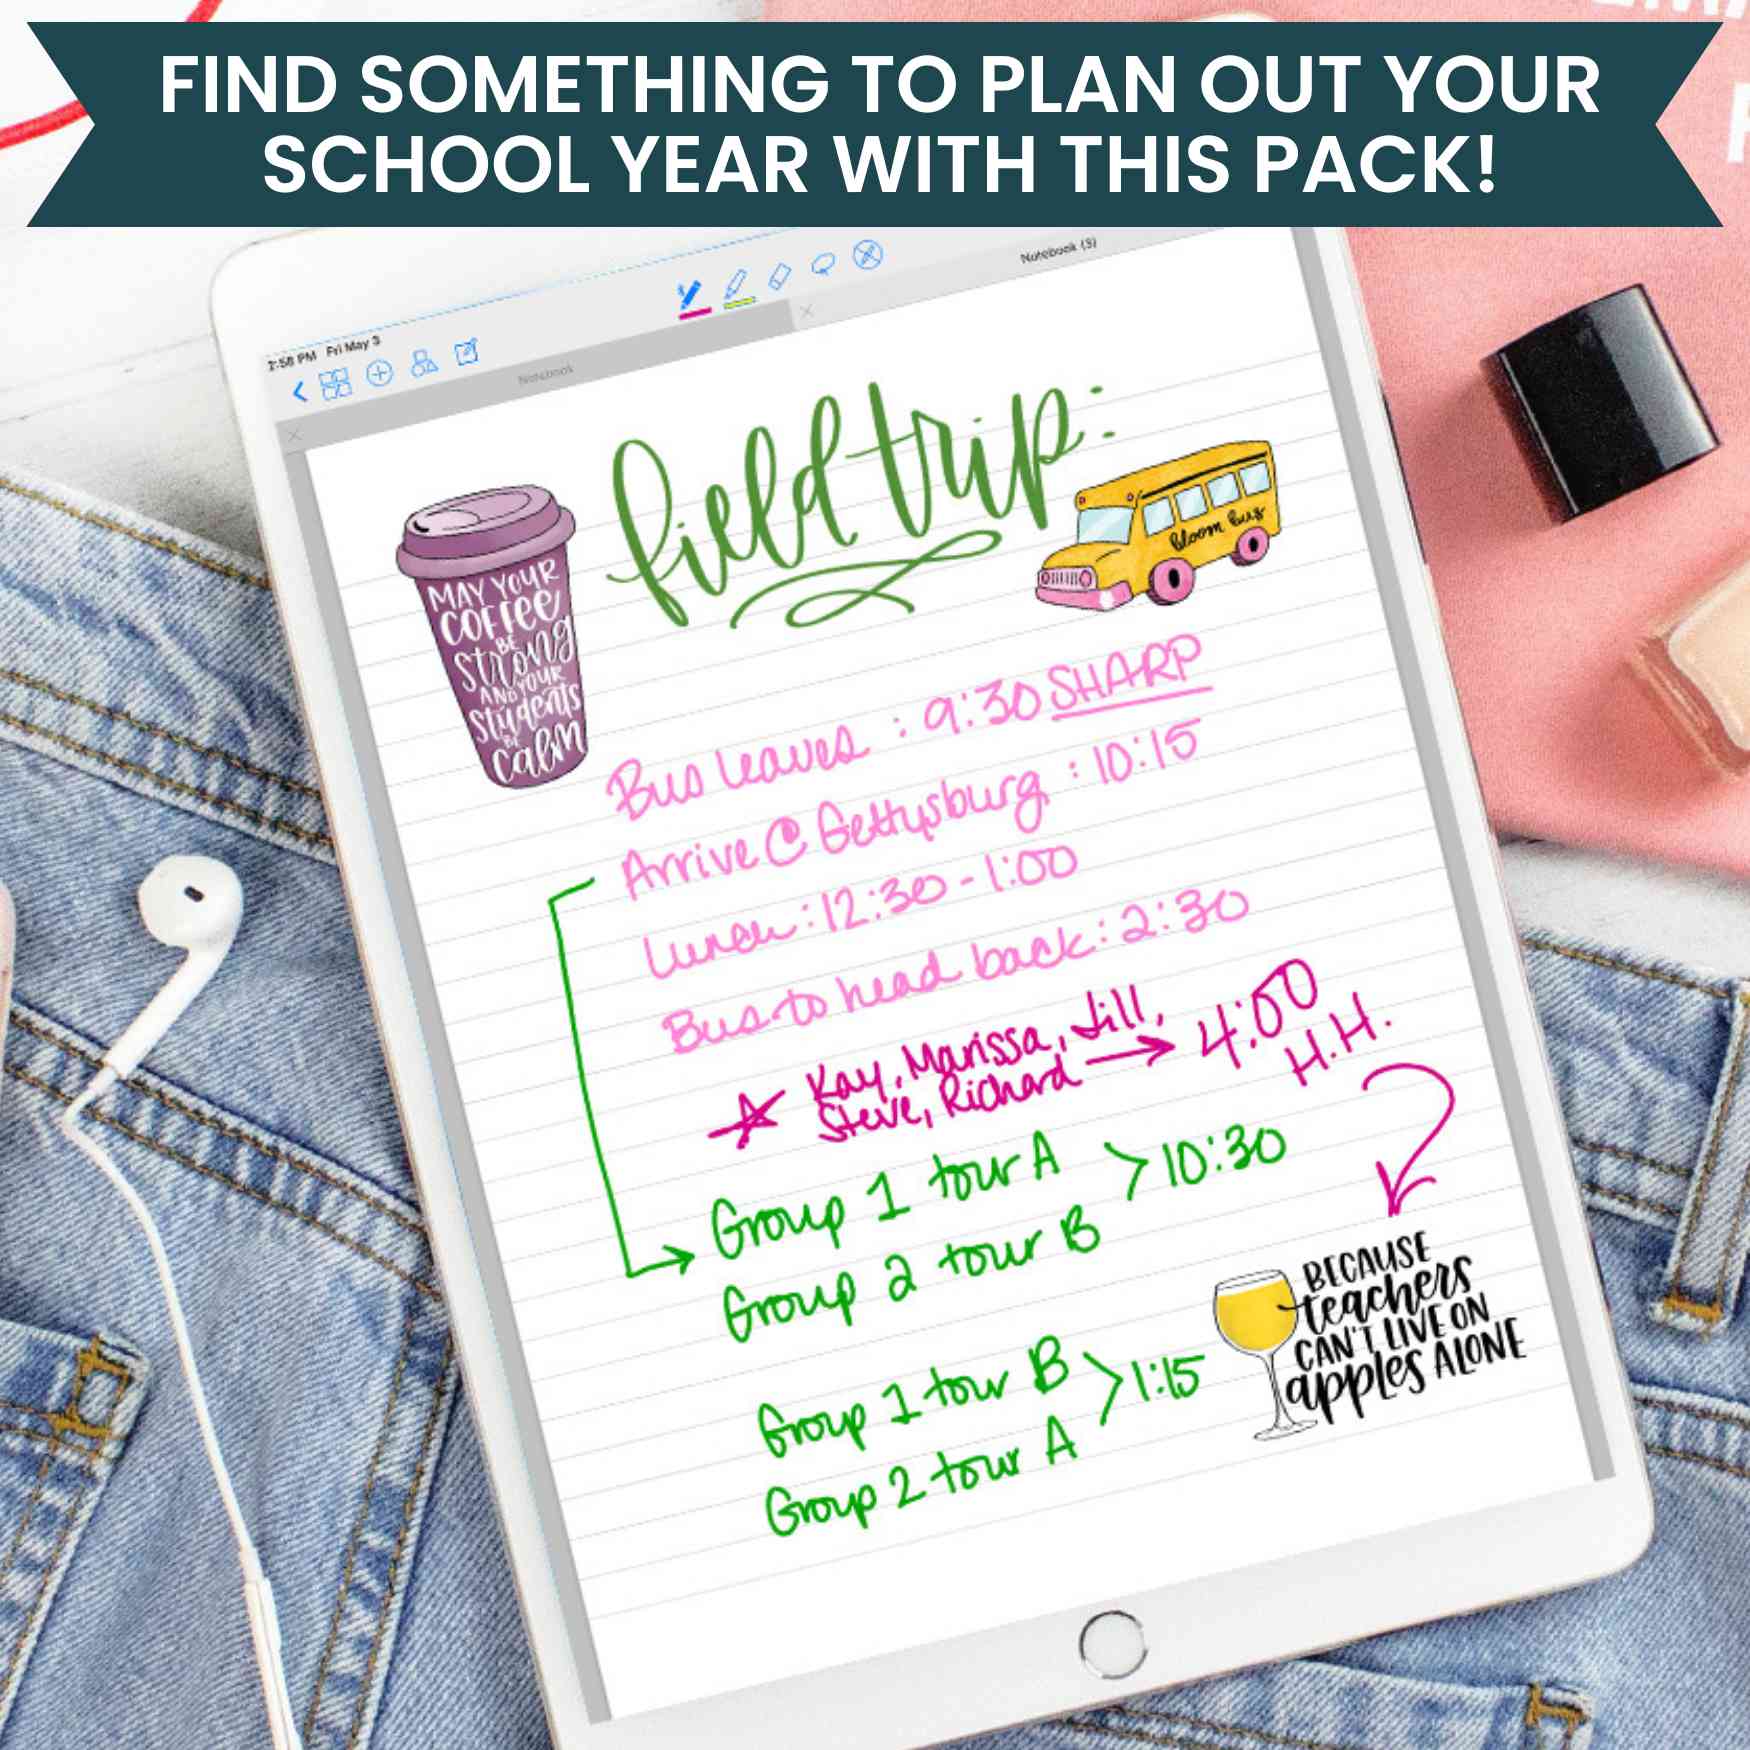 FIND SOMETHING TO PLAN OUT YOUR
SCHOOL YEAR WITH THIS PACK!
Notebook (3)
1:58 PM Fri May 3
Notebook
field trip:
MAY YOUR
COFFEE
BE
Strong
AND YOUR
Students
BE
Calm
bloom bus
Bus leaves : 9:30 SHARP
Arrive @ Gettysburg : 10:15
Lunch : 12:30 - 1:00
Bus to head back : 2:30
Kay, Marissa, Jill,
Steve, Richard → 4:00
H.H.
Group 1 tour A > 10:30
Group 2 tour B
Group 1 tour B > 1:15
Group 2 tour A
BECAUSE
teachers
CAN'T LIVE ON
apples ALONE